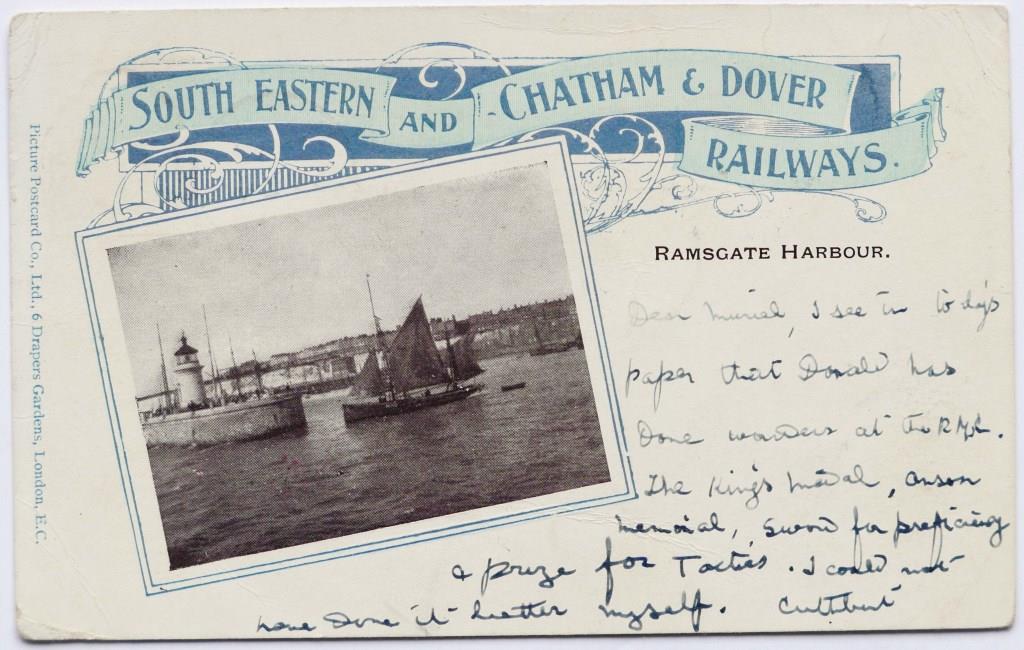 SOUTH EASTERN AND CHATHAM & DOVER
RAILWAYS.
RAMSGATE HARBOUR.
Dear Muriel, I see in to days
paper that Donald has
done wonders at the R.M.C.
The King's Medal, Anson
Memorial, Sword for proficiency
& prize for Tactics. I could not
have done it better myself. Cuthbert
Picture Postcard Co., Ltd., 6 Drapers Gardens, London, E.C.